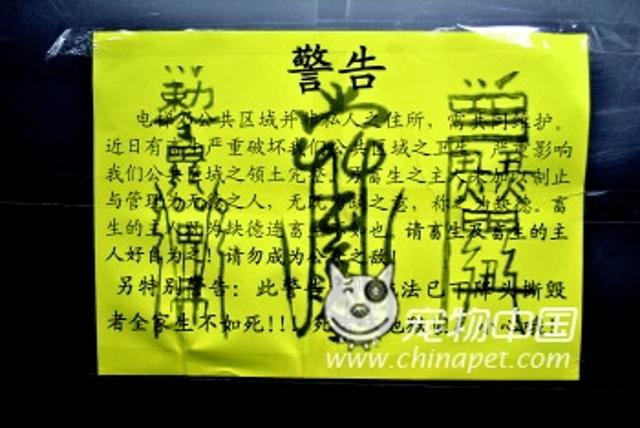 警告
电梯乃公共区域并非私人之住所，需共同维护。
近日有畜生严重破坏我们公共区域之卫生，严重影响
我们公共区域之领土完整。畜生之主人制止
与管理为无德之人，无之意，称之为缺德。畜
生的主人为缺德连畜生不如也，请畜生及畜生的主
人好自为之！请勿成为公众之敌！
另特别警告：此警告法已下撕毁
者全家生不如死！！！
宠物中国
www.chinapet.com